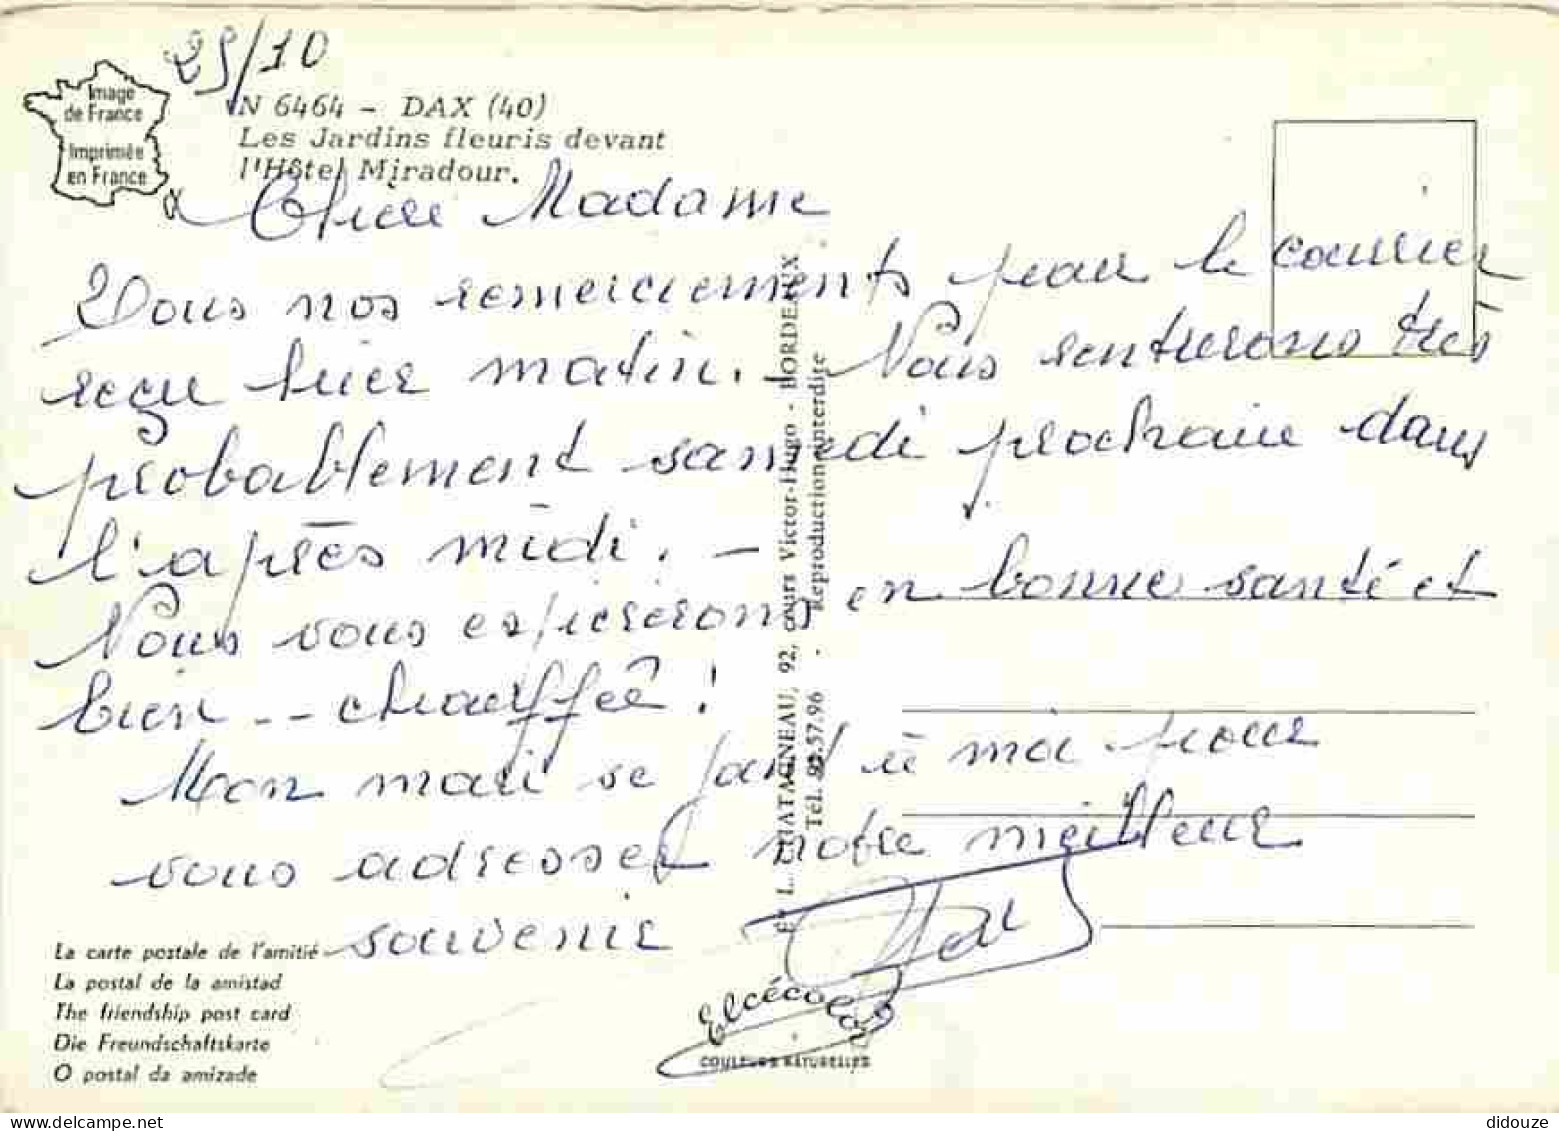 25/10
Image
de France
Imprimée
en France
N 6464 - DAX (40)
Les Jardins fleuris devant
l'Hôtel Miradour.
Chère Madame
Tous nos remerciements pour le courrier
reçu hier matin. - Nous rentrerons très
probablement samedi prochain dans
l'après midi. -
Nous vous espérerons en bonne santé et
bien -- chauffée !
Mon mari se joint à moi pour
vous adresser notre meilleur
souvenir
La carte postale de l'amitié
La postal de la amistad
The friendship post card
Die Freundschaftskarte
O postal da amizade
Ets L. CHATAGNEAU, 92, cours Victor-Hugo - BORDEAUX
Tél. 57.96 - Reproduction interdite
Elcécolor
COULEURS NATURELLES
didouze